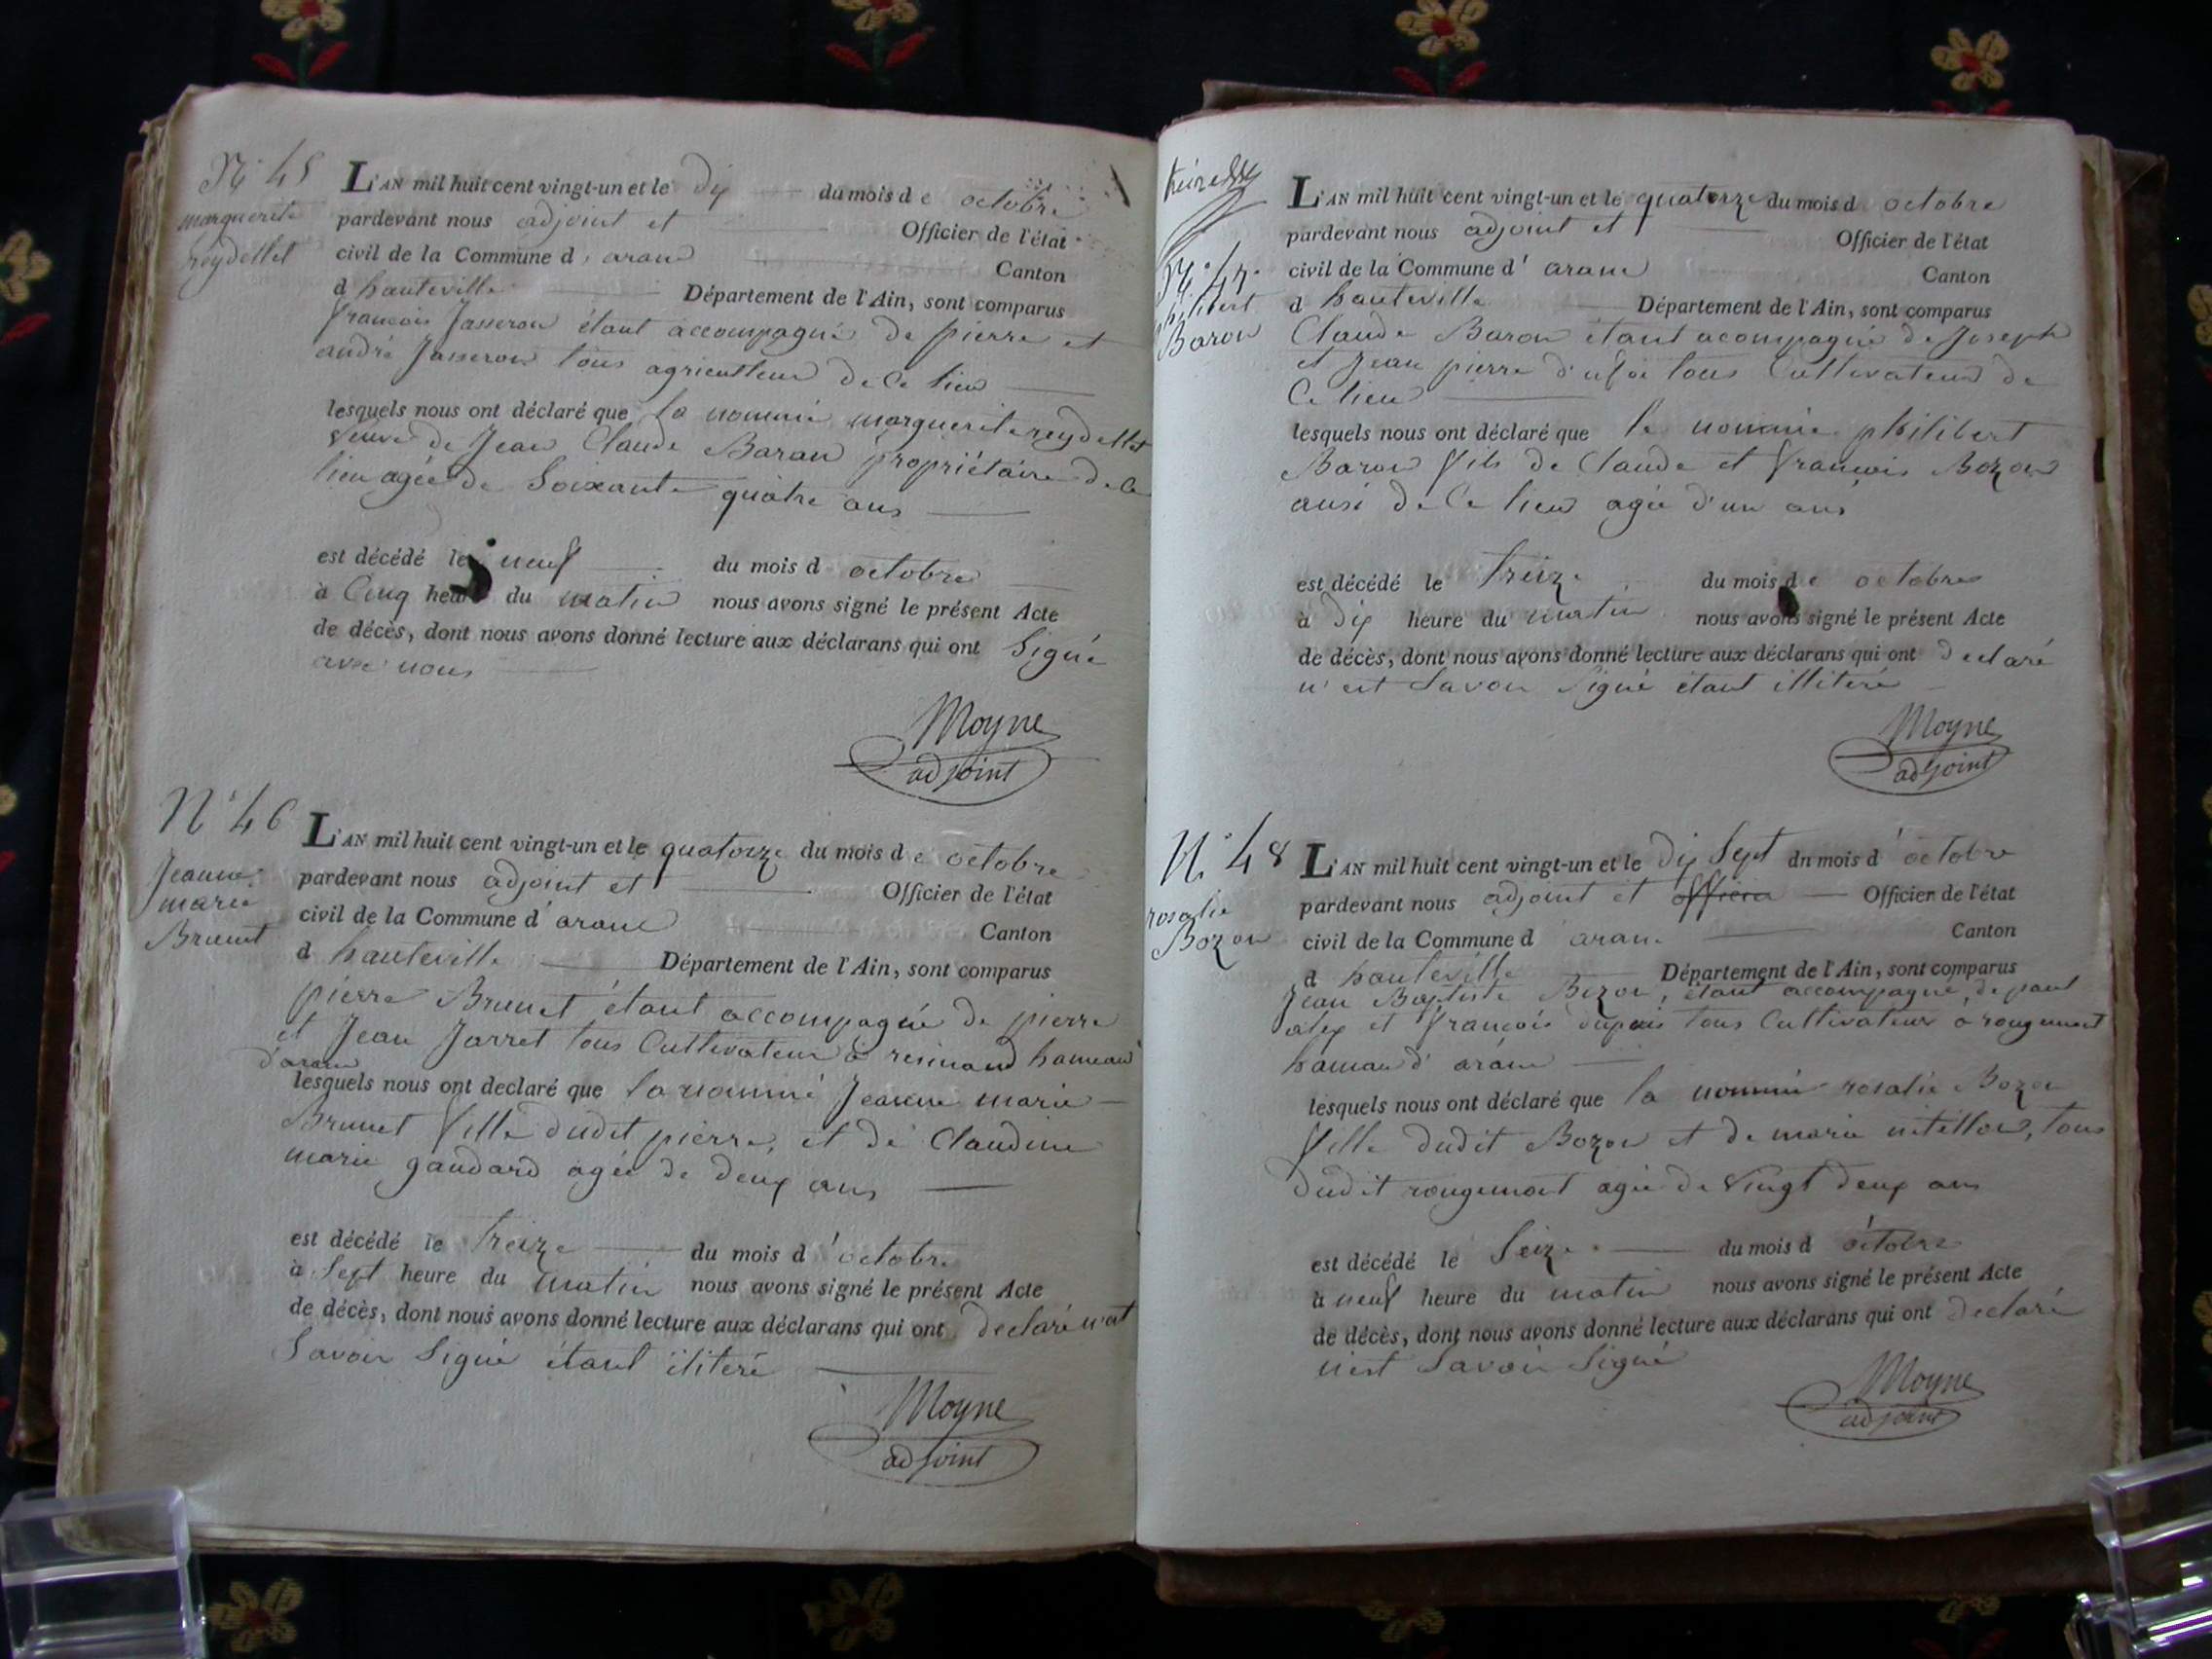 N° 45
marguerite
reydellet
L'AN mil huit cent vingt-un et le dix du mois de octobre
pardevant nous adjoint et Officier de l'état
civil de la Commune d' aranc Canton
d hauteville Département de l'Ain, sont comparus
francois Jasseron étant accompagné de pierre et
andré Jasseron tous agriculteur de Ce lieu
lesquels nous ont déclaré que la nommé marguerite reydellet
veuve de Jean Claude Baron propriétaire de Ce
lieu agée de Soixante quatre ans
est décédé le neuf du mois d octobre
à Cinq heure du matin nous avons signé le présent Acte
de décès, dont nous avons donné lecture aux déclarans qui ont Signé
avec nous
Moyne
adjoint
N° 46
Jeanne
marie
Brunet
L'AN mil huit cent vingt-un et le quatorze du mois de octobre
pardevant nous adjoint et Officier de l'état
civil de la Commune d' aranc Canton
d hauteville Département de l'Ain, sont comparus
pierre Brunet étant accompagné de pierre
et Jean Jarret tous Cultivateur à resinand hameau
d'aranc
lesquels nous ont declaré que la nommé Jeanne marie
Brunet fille dudit pierre, et de Claudine
marie gaudard agée de deux ans
est décédé le treize du mois d'octobre
à Sept heure du matin nous avons signé le présent Acte
de décès, dont nous avons donné lecture aux déclarans qui ont declaré n'est
Savoir Signé étant ilitéré
Moyne
adjoint
N° 47
philibert
Baron
L'AN mil huit cent vingt-un et le quatorze du mois d octobre
pardevant nous adjoint et Officier de l'état
civil de la Commune d' aranc Canton
d hauteville Département de l'Ain, sont comparus
Claude Baron étant acompagné de Joseph
et Jean pierre tous Cultivateur de
Ce lieu
lesquels nous ont déclaré que le nommé philibert
Baron fils de Claude et francois Bozon
ausi de Ce lieu agée d'un ans
est décédé le treize du mois de octobre
à dix heure du matin nous avons signé le présent Acte
de décès, dont nous avons donné lecture aux déclarans qui ont declaré
n'est Savoir Signé étant illiteré
Moyne
adjoint
N° 48
rosalie
Bozon
L'AN mil huit cent vingt-un et le dix Sept du mois d'octobre
pardevant nous adjoint et officier Officier de l'état
civil de la Commune d aranc Canton
d hauteville Département de l'Ain, sont comparus
Jean Baptiste Bozon, étant accompagné, de paul
alex et francois dupuis tous Cultivateur a rougemont
hamau d'aranc
lesquels nous ont déclaré que la nommé rosalie Bozon
fille dudit Bozon et de marie tous
dudit rougemont agée de vingt deux ans
est décédé le Seize du mois d octobre
à neuf heure du matin nous avons signé le présent Acte
de décès, dont nous avons donné lecture aux déclarans qui ont declaré
n'est Savoir Signé
Moyne
adjoint